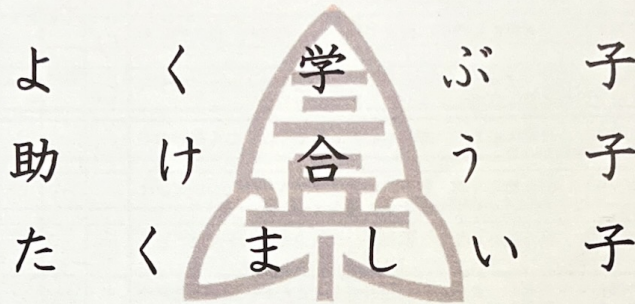 よく学ぶ子
助け合う子
たくましい子